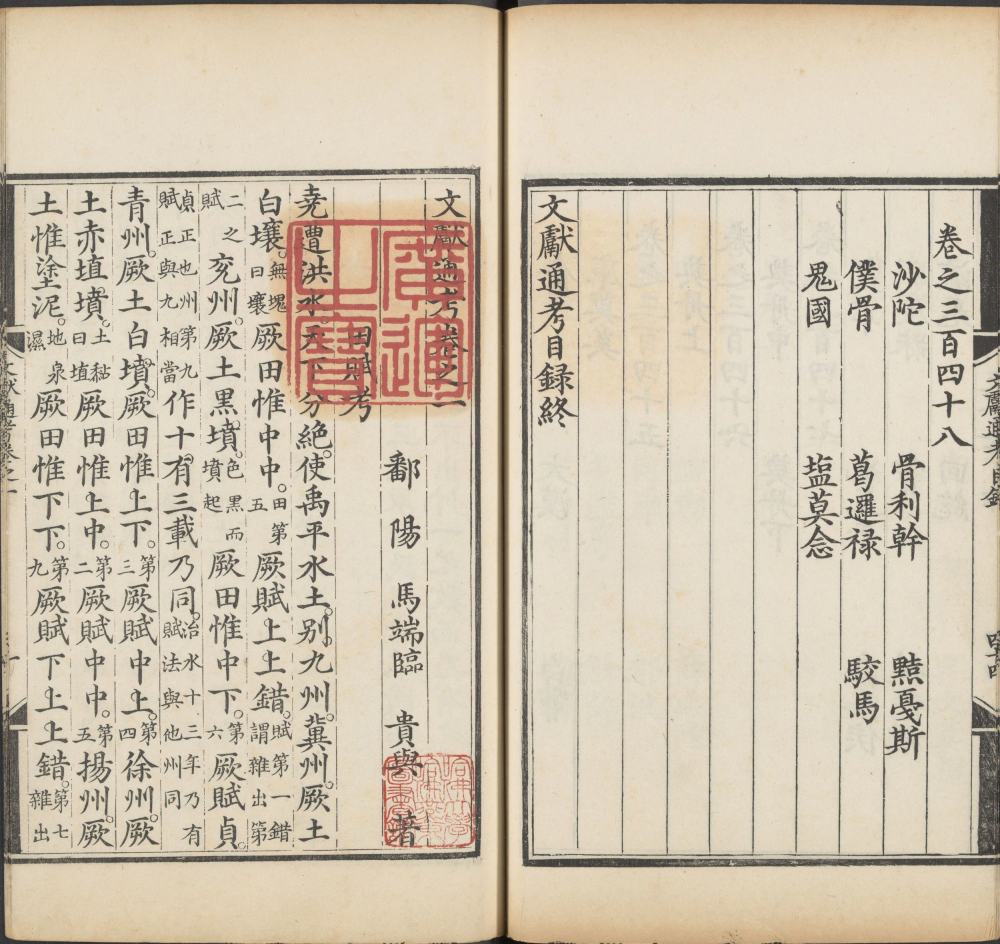 文獻通考目錄
卷之三百四十八
沙陀 骨利幹 黠戛斯
僕骨 葛邏祿 駮馬
鬼國 盐莫念
文獻通考目録終
文獻通考卷之一
田賦考
鄱陽 馬端臨 貴與 著
堯遭洪水天下分絶。使禹平水土。别九州。冀州。厥土
白壤。無塊曰壤厥田惟中中。田第五厥賦上上錯。賦第一錯謂雜出第
二之賦兖州。厥土黑墳。色黑而墳起厥田惟中下。第六厥賦貞。
貞正也州第九賦正與九相當作十有三載乃同。治水十三年乃有賦法與他州同
青州。厥土白墳。厥田惟上下。第三厥賦中上。第四徐州。厥
土赤埴墳。土黏曰埴厥田惟上中。第二厥賦中中。第五揚州。厥
土惟塗泥。地泉濕厥田惟下下。第九厥賦下上上錯。第七雜出
廣運之寶